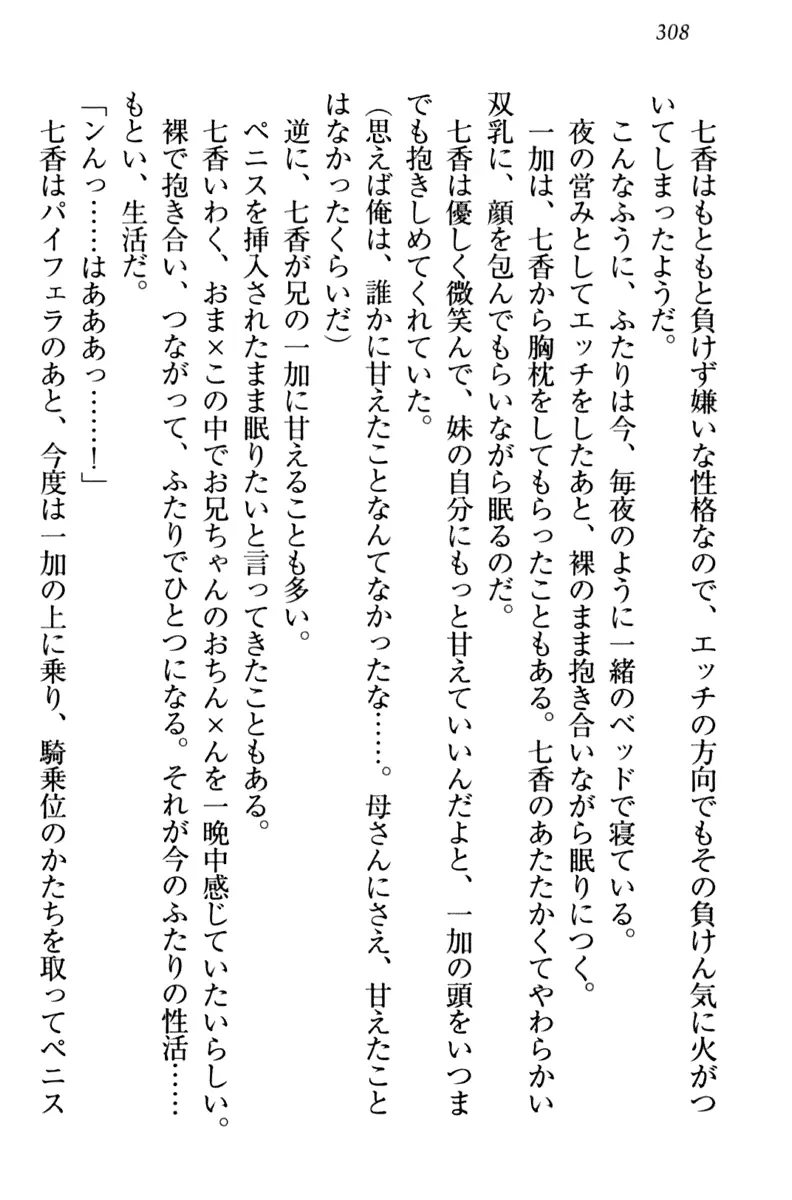 308
七香はもともと負けず嫌いな性格なので、エッチの方向でもその負けん気に火がつ
いてしまったようだ。
こんなふうに、ふたりは今、毎夜のように一緒のベッドで寝ている。
夜の営みとしてエッチをしたあと、裸のまま抱き合いながら眠りにつく。
一加は、七香から胸枕をしてもらったこともある。七香のあたたかくてやわらかい
双乳に、顔を包んでもらいながら眠るのだ。
七香は優しく微笑んで、妹の自分にもっと甘えていいんだよと、一加の頭をいつま
でも抱きしめてくれていた。
(思えば俺は、誰かに甘えたことなんてなかったな……。母さんにさえ、甘えたこと
はなかったくらいだ)
逆に、七香が兄の一加に甘えることも多い。
ペニスを挿入されたまま眠りたいと言ってきたこともある。
七香いわく、おま×この中でお兄ちゃんのおちん×んを一晩中感じていたいらしい。
裸で抱き合い、つながって、ふたりでひとつになる。それが今のふたりの性活……
もとい、生活だ。
「ンんっ……はああぁっ……!」
七香はパイフェラのあと、今度は一加の上に乗り、騎乗位のかたちを取ってペニス